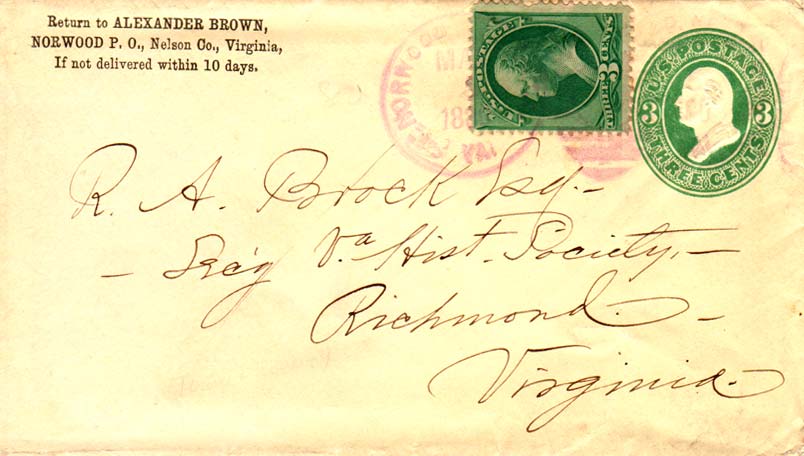 Return to ALEXANDER BROWN,
NORWOOD P. O., Nelson Co., Virginia,
If not delivered within 10 days.
NORWOOD
MA
18
VA.
U.S. POSTAGE
3 CENTS
U.S. POSTAGE
3 3
THREE CENTS
R. A. Brock Esq.-
- Sec'y Va Hist. Society,-
Richmond -
Virginia.